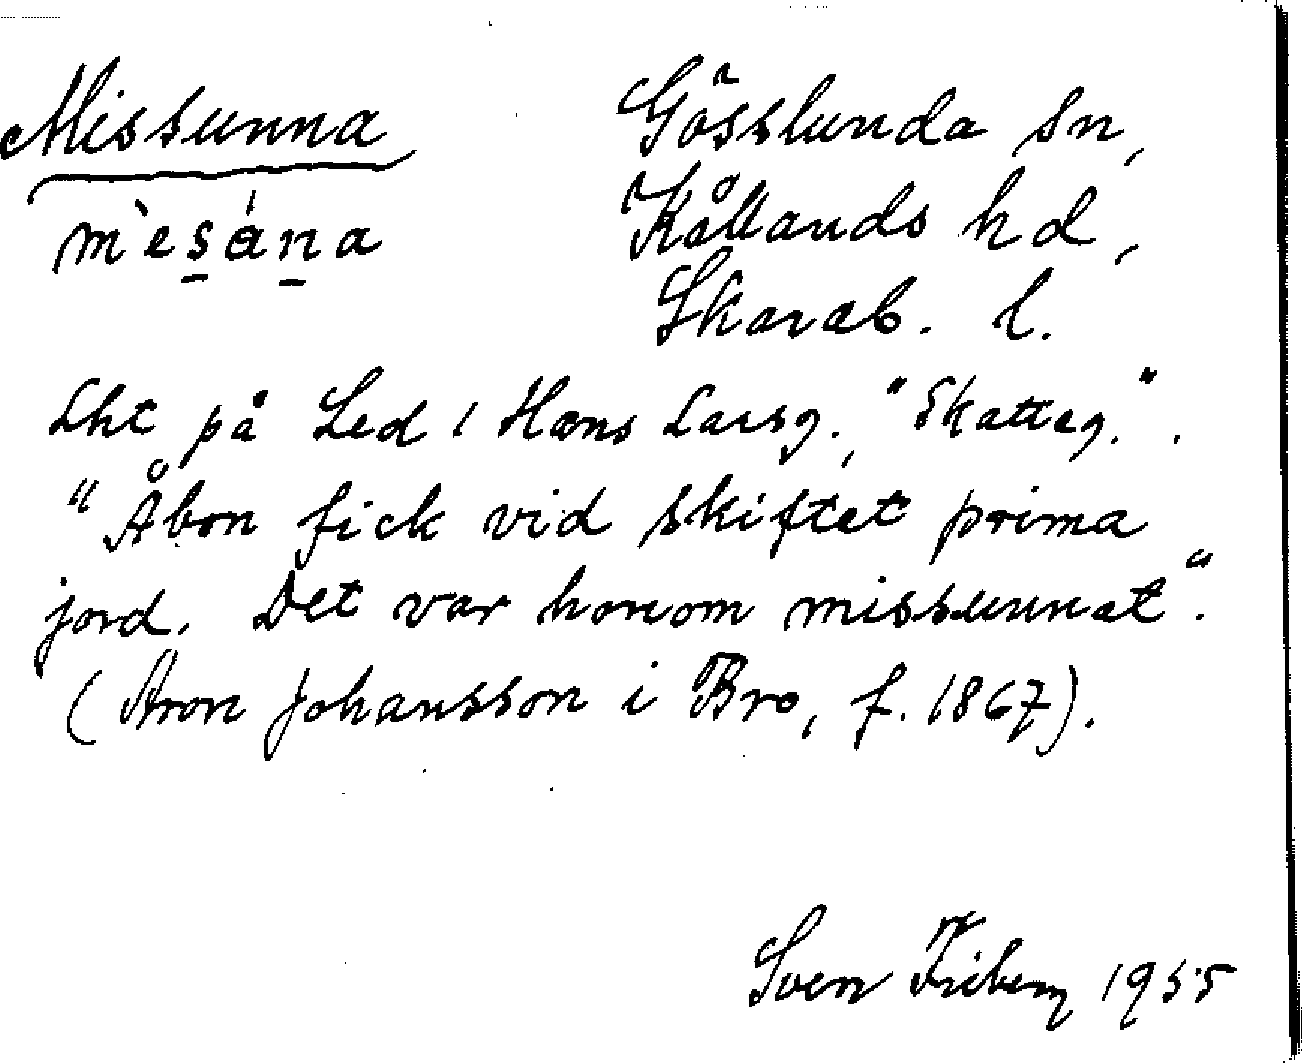 Missunna
Gösslunda sn,
m`es̱áṉa
Kållands hd,
Skarab. l.
Lht på Led 1 Hans Larsg., "Skatteg.".
"Åbon fick vid skiftet prima
jord. Det var honom missunnat".
(Aron Johansson i Bro, f. 1867).
Sven Friberg 1955